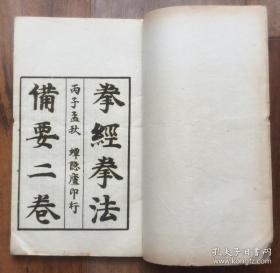 拳經拳法
丙子孟秋 蟫隱廬印行
備要二卷
孔夫子旧书网